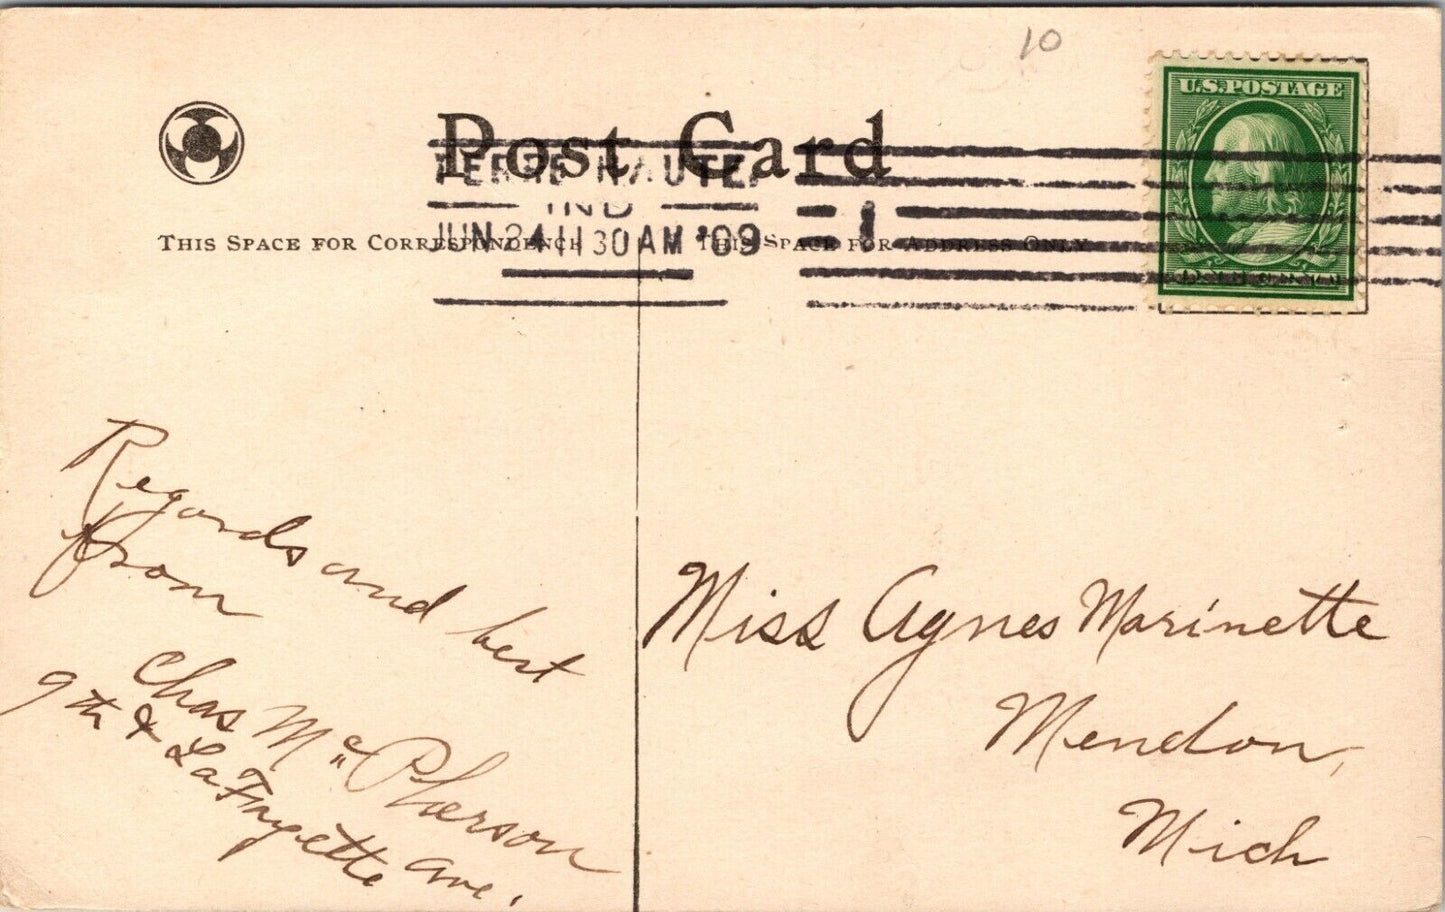 10
U.S. POSTAGE
Post Card
TERRE HAUTE,
IND
JUN 24 11 30 AM '09
1
THIS SPACE FOR CORRESPONDENCE
THIS SPACE FOR ADDRESS ONLY
Regards and best
from
Chas McPherson
9th & LaFayette Ave.
Miss Agnes Marinette
Mendon,
Mich